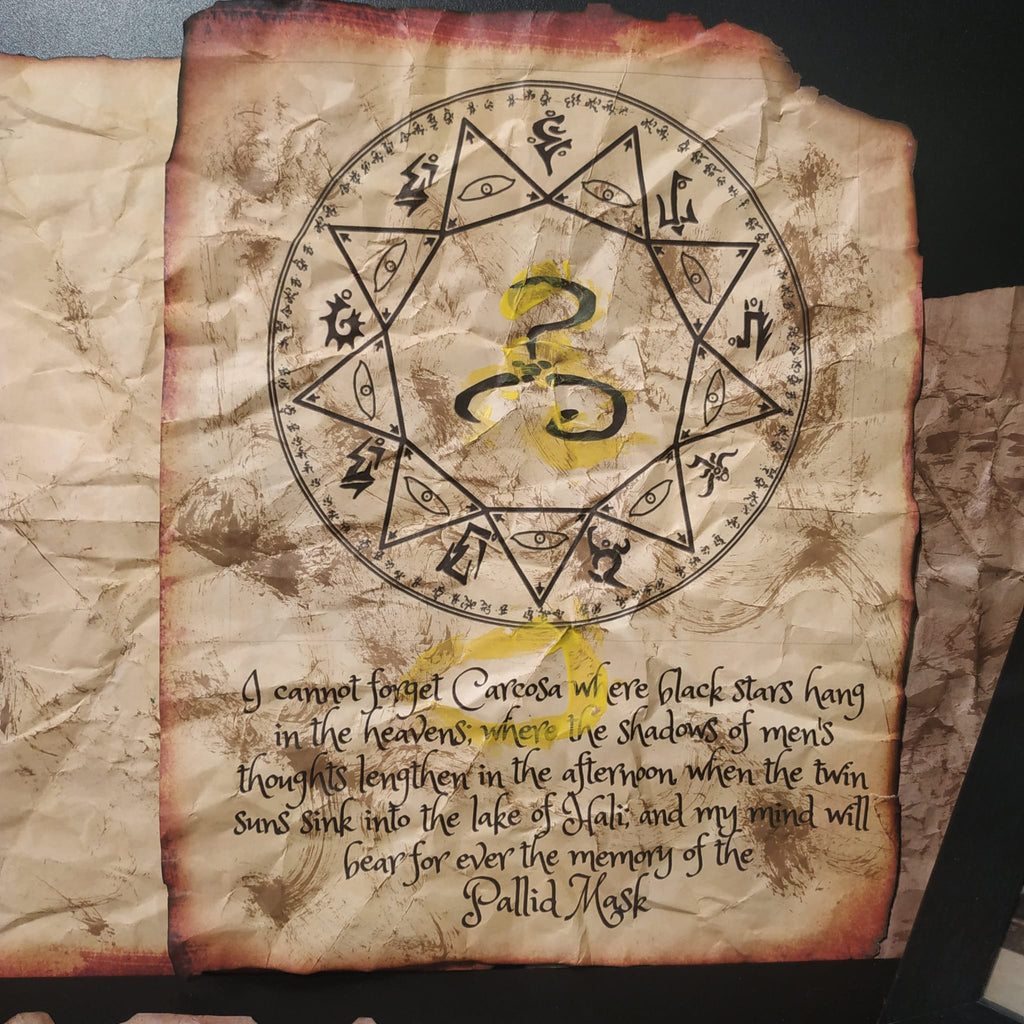 I cannot forget Carcosa where black stars hang
in the heavens; where the shadows of men's
thoughts lengthen in the afternoon, when the twin
suns sink into the lake of Hali; and my mind will
bear for ever the memory of the
Pallid Mask